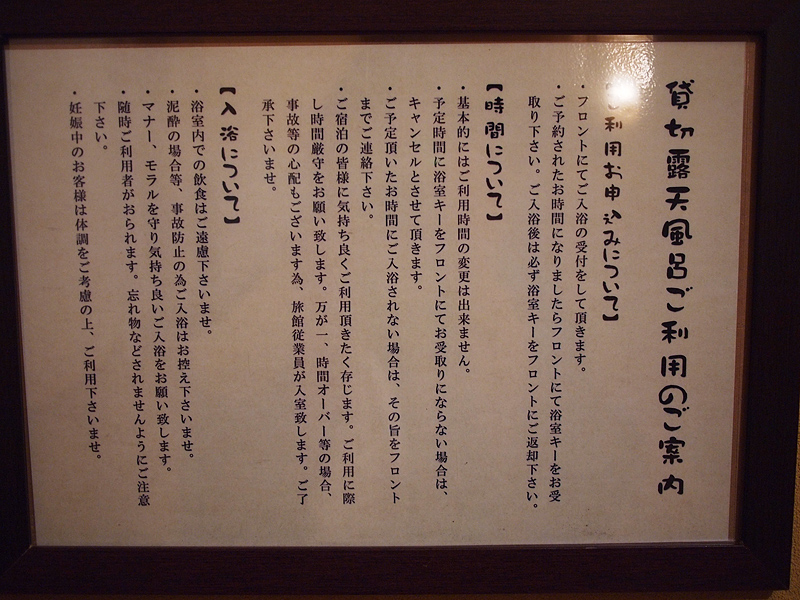 貸切露天風呂ご利用のご案内
利用お申込みについて】
・フロントにてご入浴の受付をして頂きます。
・ご予約されたお時間になりましたらフロントにて浴室キーをお受
取り下さい。ご入浴後は必ず浴室キーをフロントにご返却下さい。
【時間について】
・基本的にはご利用時間の変更は出来ません。
・予定時間に浴室キーをフロントにてお受取りにならない場合は、
キャンセルとさせて頂きます。
・ご予定頂いたお時間にご入浴されない場合は、その旨をフロント
までご連絡下さい。
・ご宿泊の皆様に気持ち良くご利用頂きたく存じます。ご利用に際
し時間厳守をお願い致します。万が一、時間オーバー等の場合、
事故等の心配もございます為、旅館従業員が入室致します。ご了
承下さいませ。
【入浴について】
・浴室内での飲食はご遠慮下さいませ。
・泥酔の場合等、事故防止の為ご入浴はお控え下さいませ。
・マナー、モラルを守り気持ち良いご入浴をお願い致します。
・随時ご利用者がおられます。忘れ物などされませんようにご注意
下さい。
・妊娠中のお客様は体調をご考慮の上、ご利用下さいませ。